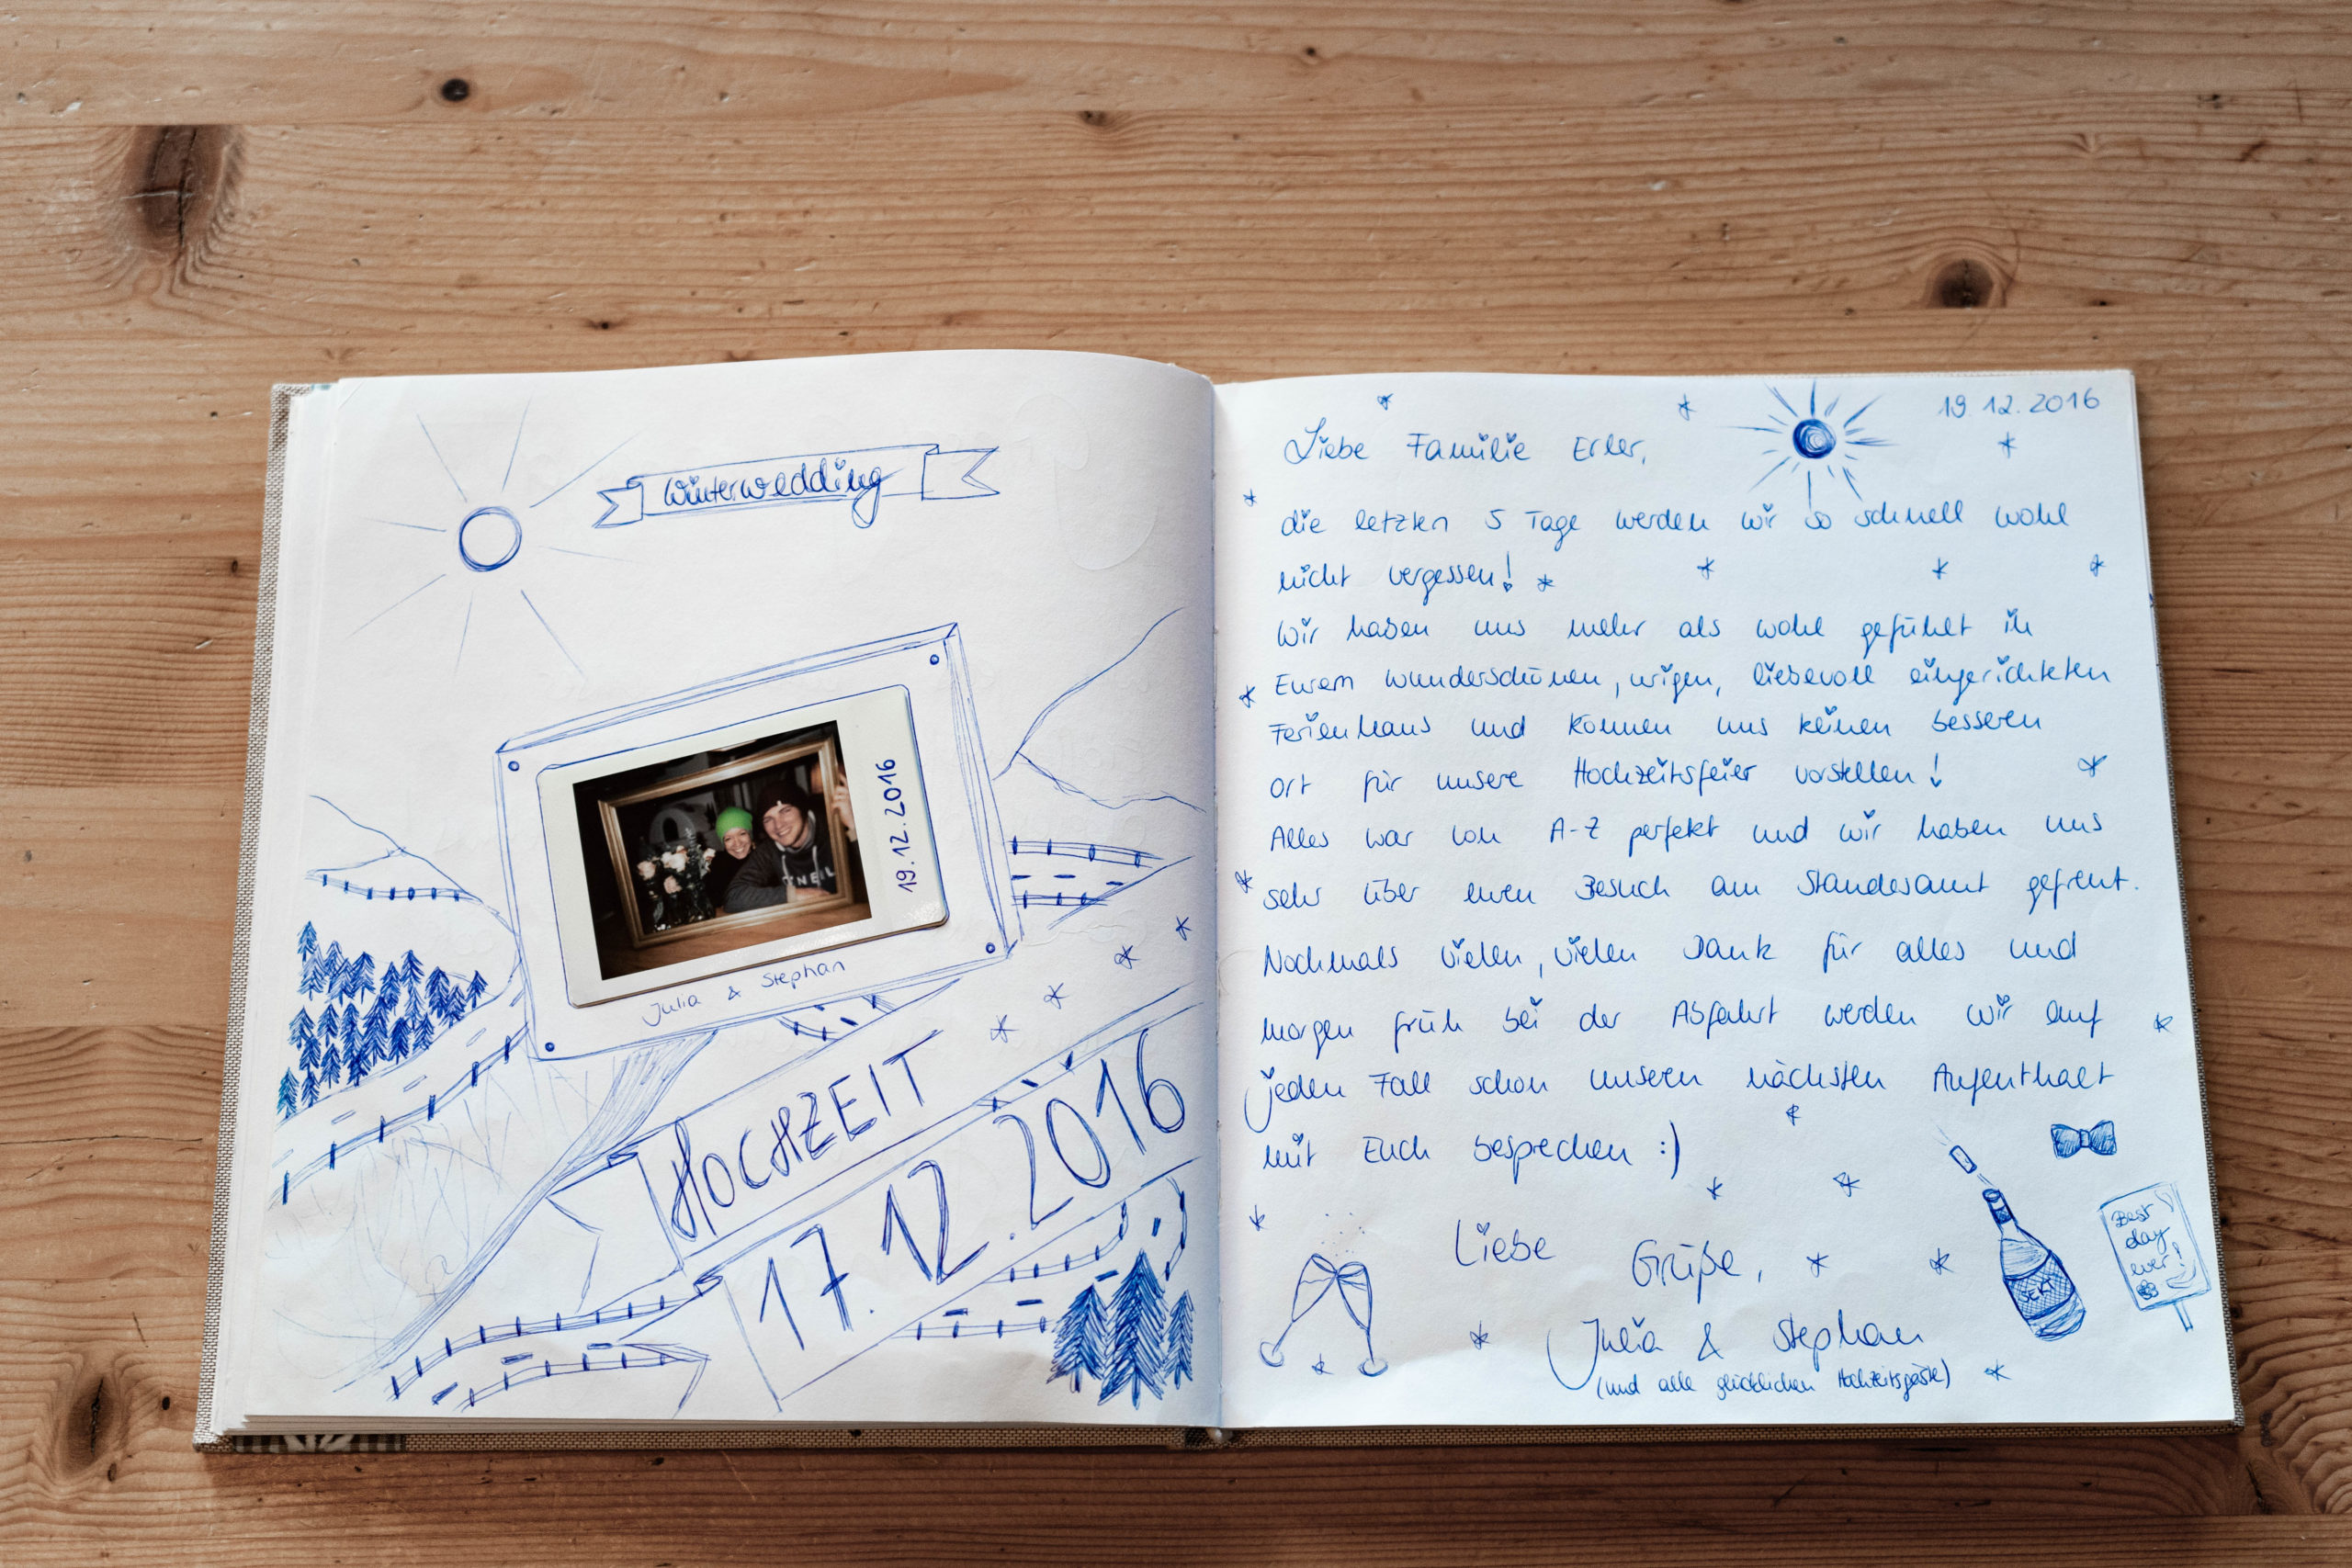 Winterwedding
19.12.2016
O'NEILL
Julia & Stephan
HOCHZEIT
17.12.2016
19.12.2016
Liebe Familie Erler,
die letzten 5 Tage werden wir so schnell wohl
nicht vergessen!
Wir haben uns mehr als wohl gefühlt in
Eurem wunderschönen, urigen, liebevoll eingerichteten
Ferienhaus und können uns keinen besseren
Ort für unsere Hochzeitsfeier vorstellen!
Alles war von A-Z perfekt und wir haben uns
sehr über euren Besuch am Standesamt gefreut.
Nochmals vielen, vielen Dank für alles und
morgen früh bei der Abfahrt werden wir auf
jeden Fall schon unseren nächsten Aufenthalt
mit Euch besprechen :)
Liebe Grüße,
Julia & Stephan
(und alle glücklichen Hochzeitsgäste)
SEKT
Best
day
ever!